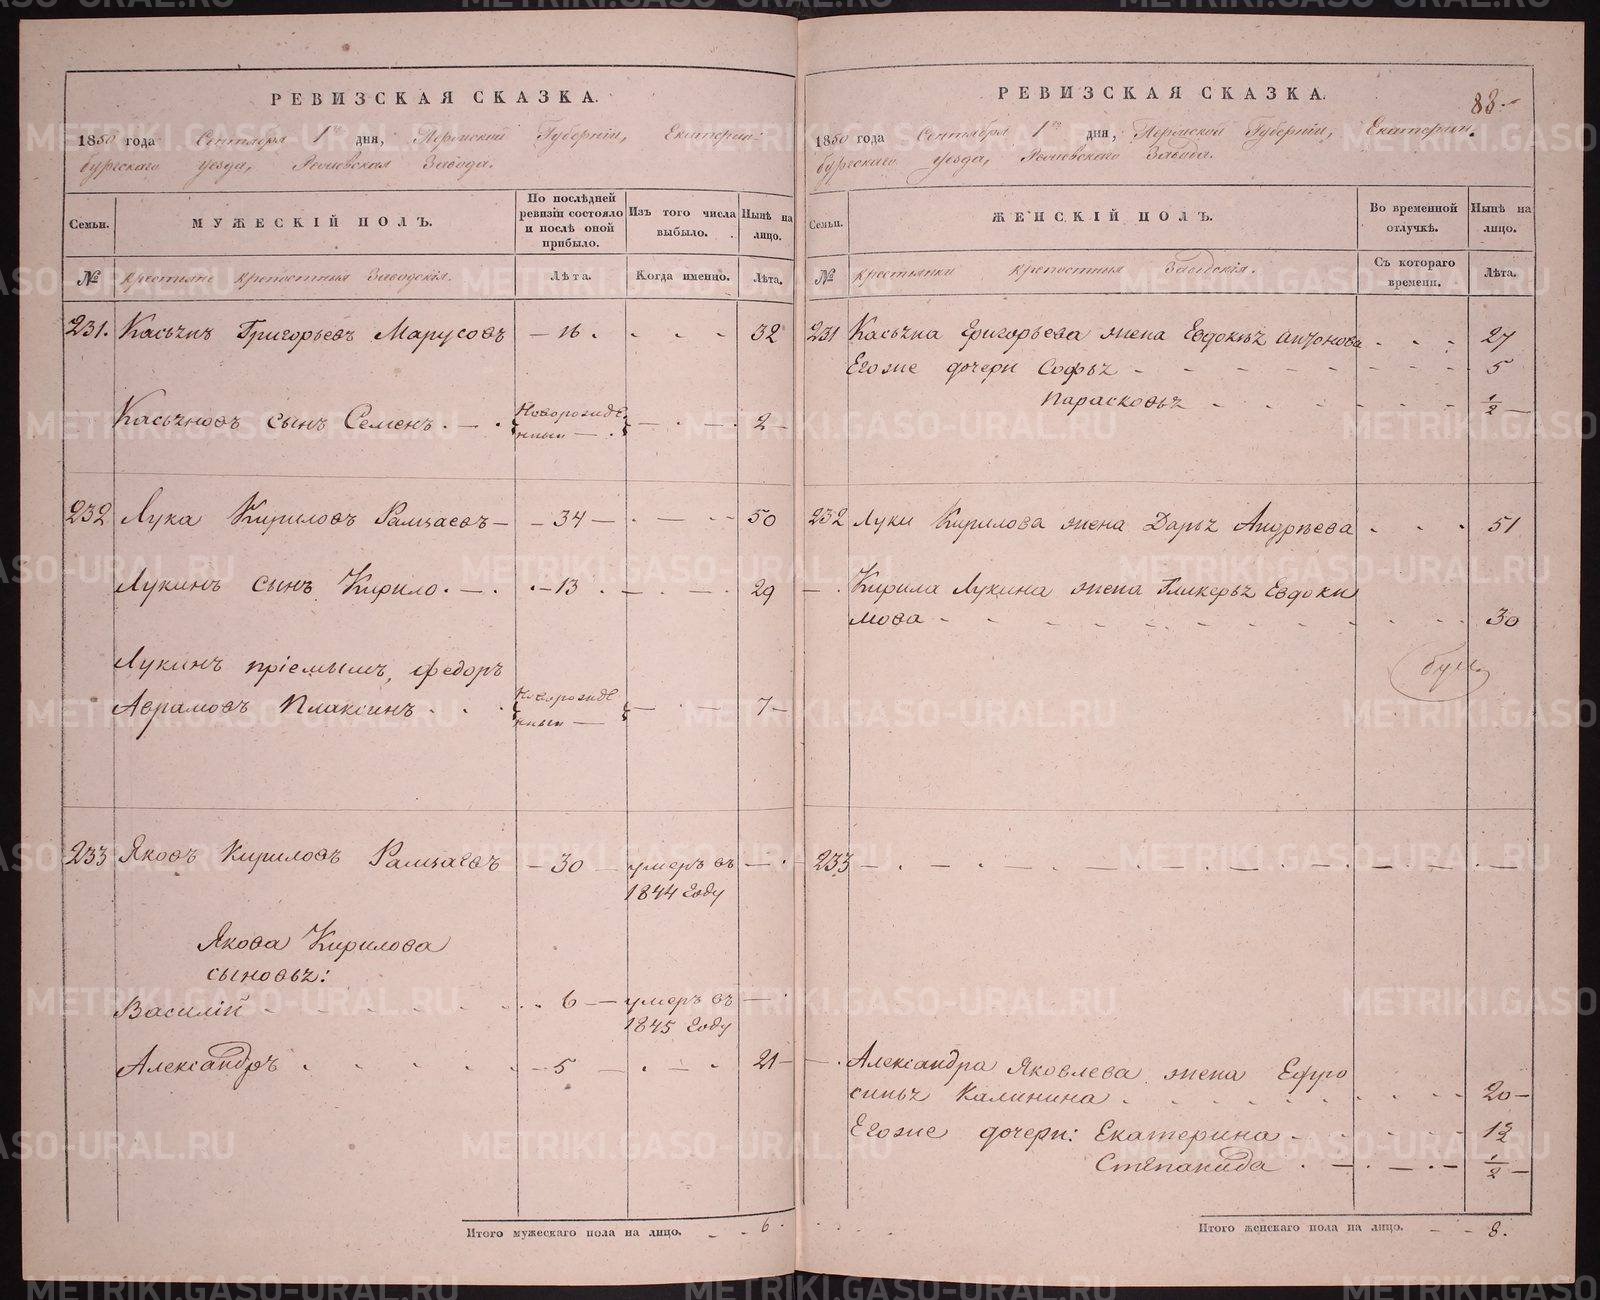 РЕВИЗСКАЯ СКАЗКА.
1850 года Сентября 1го дня, Пермской Губерніи, Екатерин-
бургскаго уезда, Завода.
Семьи.
МУЖЕСКІЙ ПОЛЪ.
По послѣдней ревизіи состояло и послѣ оной прибыло.
Изъ того числа выбыло.
Нынѣ на лицо.
№
крестьяне крепостныя Заводскія.
Лѣта.
Когда именно.
Лѣта.
231. Касьянъ Григорьевъ Марусовъ — 16 . 32
Касьяновъ сынъ Семенъ. Новорожде нный 2
232 Лука Кириловъ Рамзаевъ — 34 — 50
Лукинъ сынъ Кирило. — 13 . 29
Лукинъ пріемышъ, Федоръ
Аврамовъ Плаксинъ Новорожде нный 7
233 Яковъ Кириловъ Рамзаевъ — 30 — умеръ въ
1844 году
Якова Кирилова
сыновья:
Василій 6 — умеръ въ
1845 году
Александръ 5 — 21
Итого мужескаго пола на лицо. 6.
РЕВИЗСКАЯ СКАЗКА.
88.
1850 года Сентября 1го дня, Пермской Губерніи, Екатерин-
бургскаго уезда, Завода.
Семьи.
ЖЕНСКІЙ ПОЛЪ.
Во временной отлучкѣ.
Нынѣ на лицо.
№
крестьянки крепостныя Заводскія.
Съ котораго времени.
Лѣта.
231 Касьяна Григорьева жена Евдокия Антонова 27
Егоже дочери Софья 5
Парасковья 1/2
232 Луки Кирилова жена Дарья Андреева 51
Кирила Лукина жена Гликерья Евдоки
мова 30
233
Александра Яковлева жена Ефро
синья Калинина 20
Егоже дочери: Екатерина 1 1/2
Степанида 1/2
Итого женскаго пола на лицо. 8.
METRIKI.GASO-URAL.RU